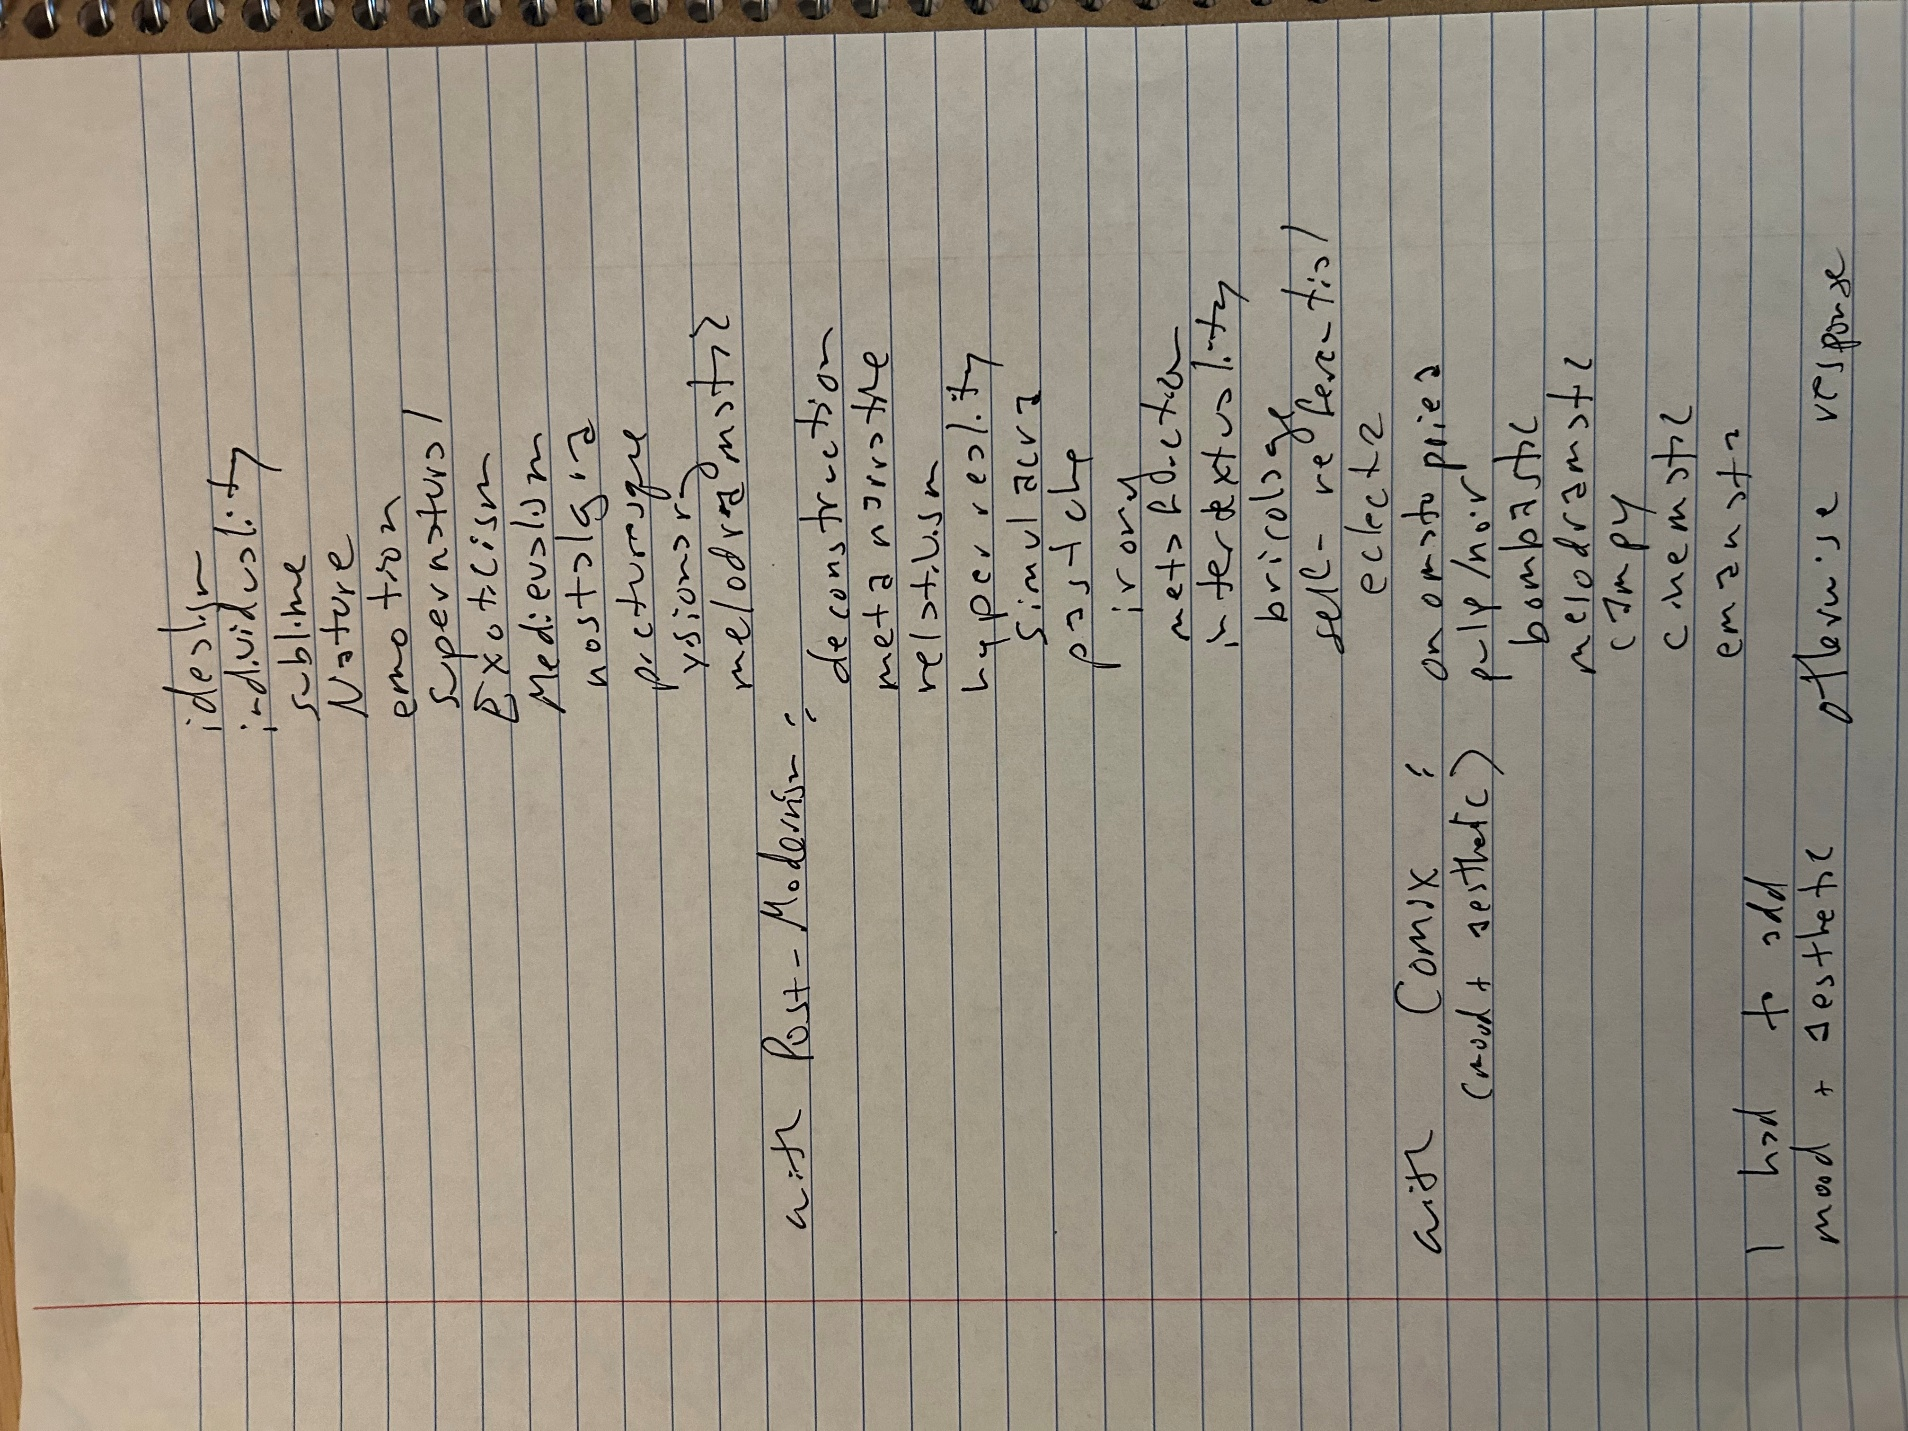 idealism
individuality
sublime
Nature
emotion
supernatural
Exoticism
Medievalism
nostalgia
picturesque
visionary
melodramatic
with Post-Modernism:
deconstruction
metanarrative
relativism
hyperreality
simulacra
pastiche
irony
metafiction
intertextuality
bricolage
self-referential
eclectic
with Comix: onomatopoiea
(mood + aesthetic) pulp/noir
bombastic
melodramatic
campy
cinematic
I had to add
mood + aesthetic otherwise response